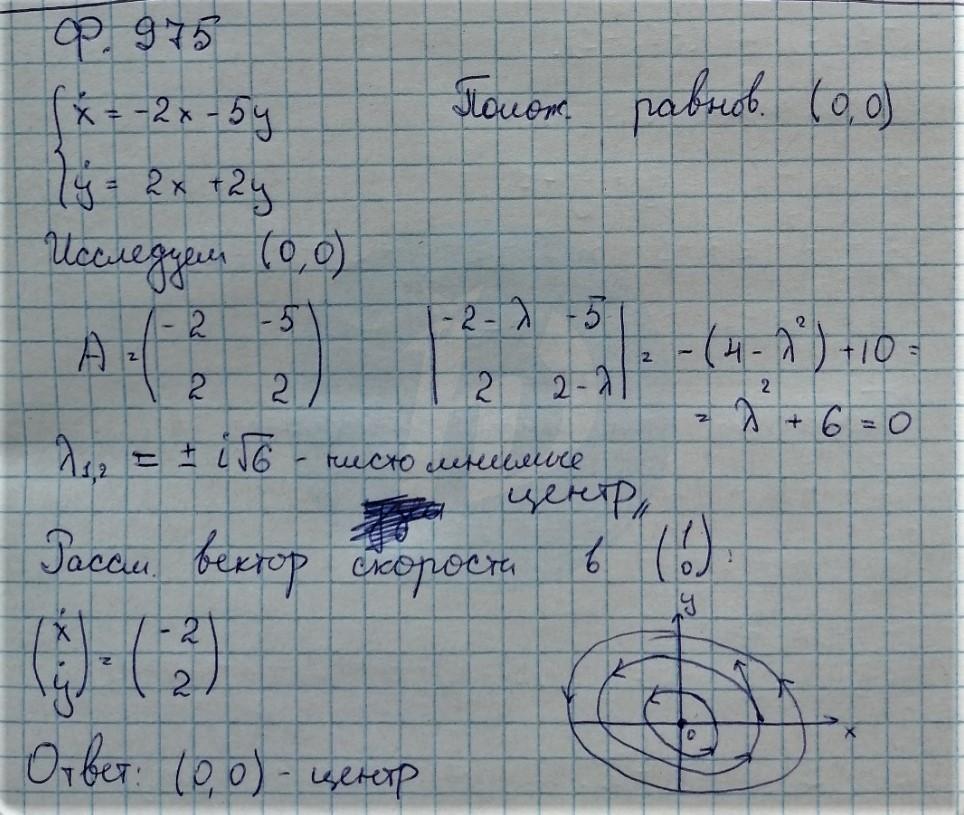 Ф. 975
{ẋ = -2x - 5y
Полож. равнов. (0,0)
{ẏ = 2x + 2y
Исследуем (0,0)
A = (-2 -5; 2 2) |-2-λ -5; 2 2-λ| = -(4-λ²)+10 =
= λ² + 6 = 0
λ1,2 = ± i√6 - чисто мнимые
центр
Рассм. вектор скорости в (1; 0):
(ẋ; ẏ) = (-2; 2)
y
0
x
Ответ: (0,0) - центр